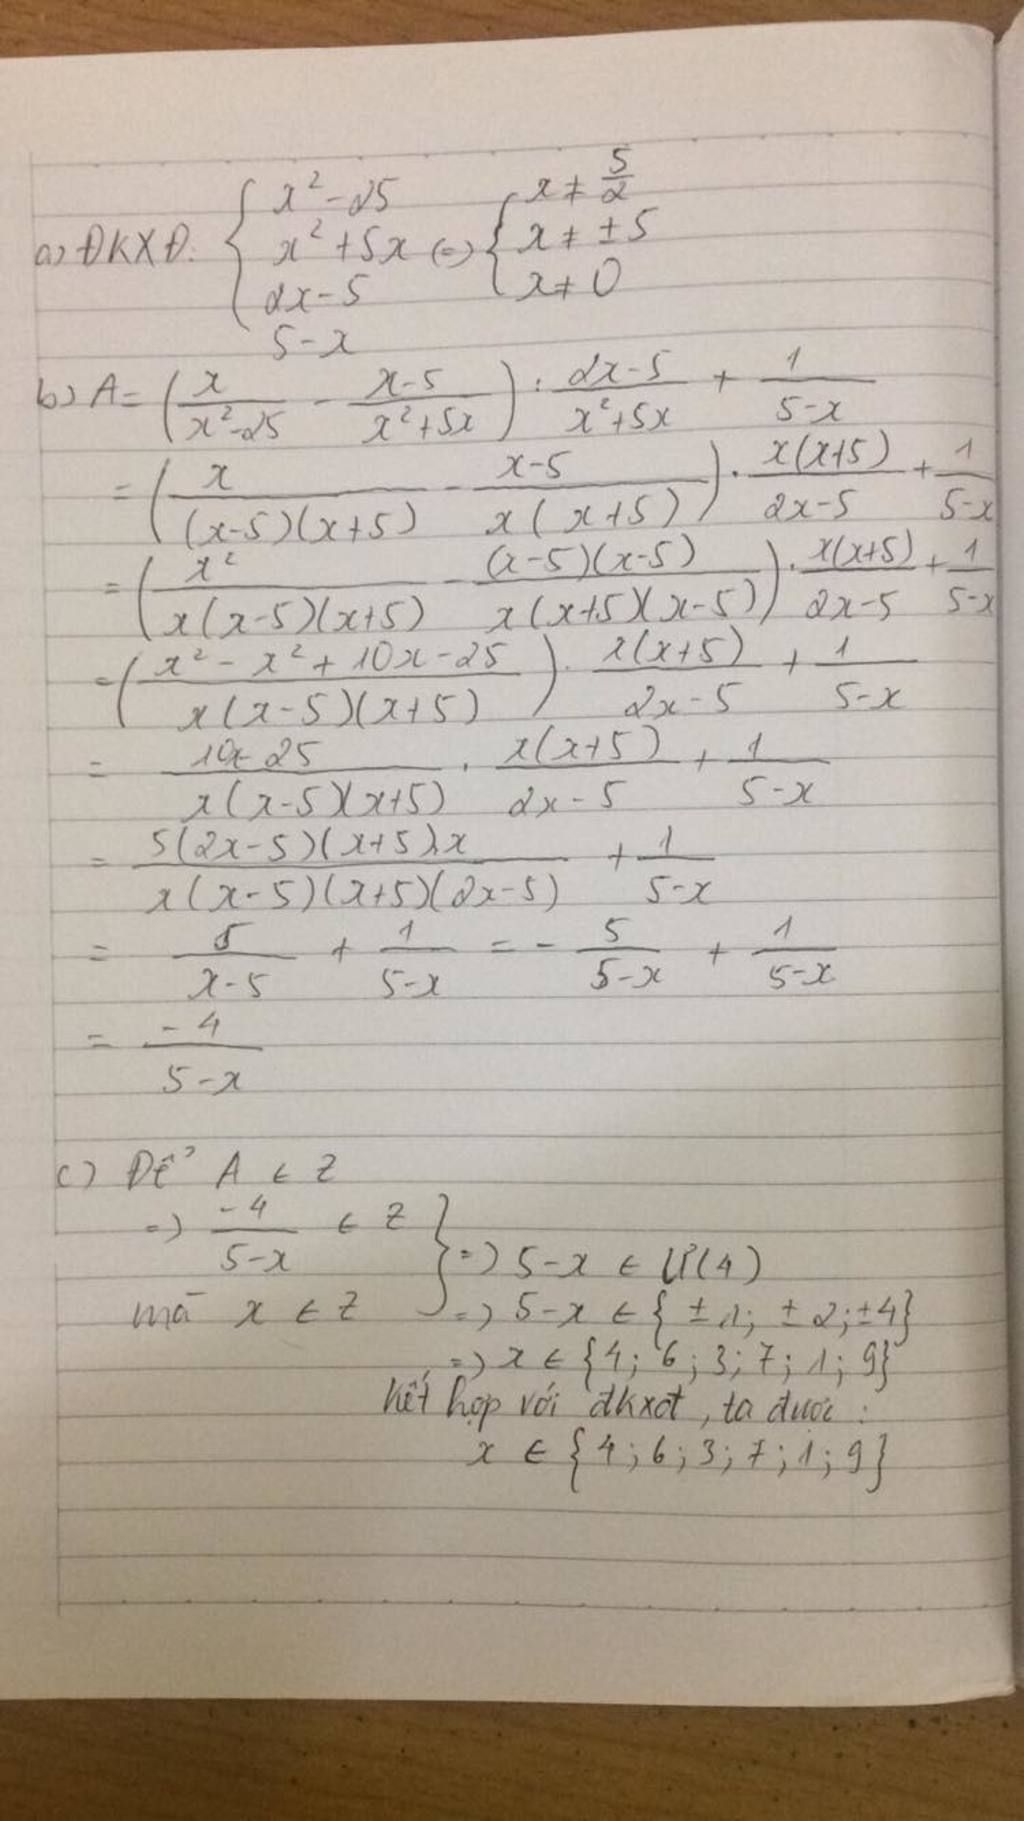 a) ĐKXĐ: { x² - 25 ; x² + 5x ; 2x - 5 ; 5 - x (=) { x ≠ 5/2 ; x ≠ ± 5 ; x ≠ 0
b) A = (x/(x²-25) - (x-5)/(x²+5x)) : (2x-5)/(x²+5x) + 1/(5-x)
= (x/((x-5)(x+5)) - (x-5)/(x(x+5))) . x(x+5)/(2x-5) + 1/(5-x)
= (x²/(x(x-5)(x+5)) - (x-5)(x-5)/(x(x+5)(x-5))) . x(x+5)/(2x-5) + 1/(5-x)
= ((x² - x² + 10x - 25)/(x(x-5)(x+5))) . x(x+5)/(2x-5) + 1/(5-x)
= (10x-25)/(x(x-5)(x+5)) . x(x+5)/(2x-5) + 1/(5-x)
= 5(2x-5)(x+5).x/(x(x-5)(x+5)(2x-5)) + 1/(5-x)
= 5/(x-5) + 1/(5-x) = - 5/(5-x) + 1/(5-x)
= -4/(5-x)
c) Để A ∈ Z
=) -4/(5-x) ∈ Z
mà x ∈ Z } =) 5-x ∈ Ư(4)
=) 5-x ∈ { ±1; ±2; ±4}
=) x ∈ {4; 6; 3; 7; 1; 9}
Kết hợp với đkxđ, ta được:
x ∈ {4; 6; 3; 7; 1; 9}